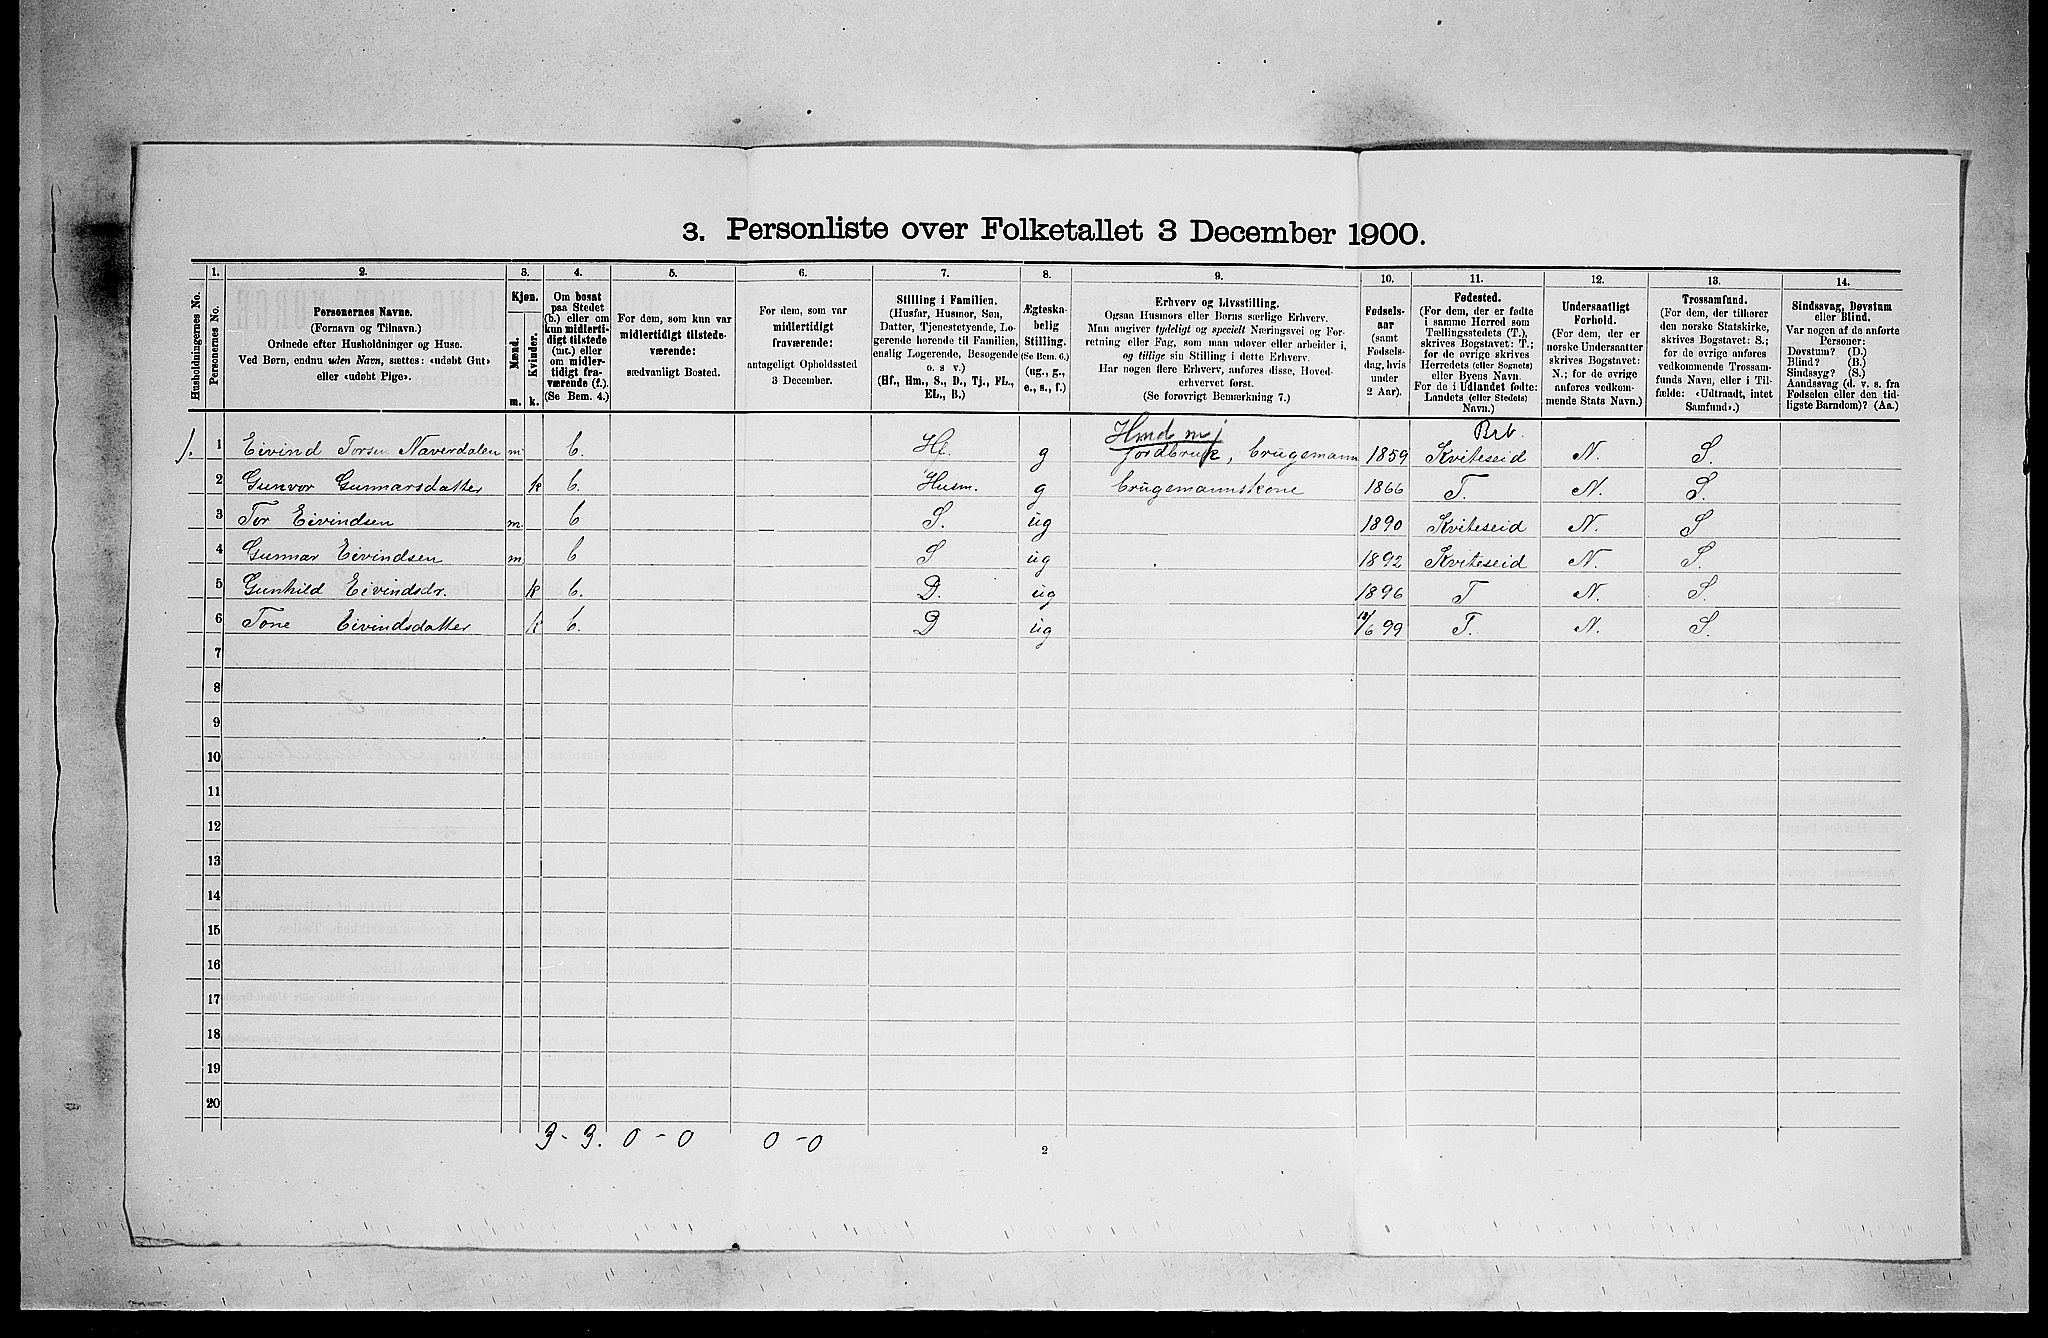 3. Personliste over Folketallet 3 December 1900.
1. 2. 3. 4. 5. 6. 7. 8. 9. 10. 11. 12. 13. 14.
Husholdningernes No.
Personernes No.
Personernes Navne.
(Fornavn og Tilnavn.)
Ordnede efter Husholdninger og Huse.
Ved Børn, endnu uden Navn, sættes: «udøbt Gut»
eller «udøbt Pige».
Kjøn.
Mænd.
Kvinder.
m. k.
Om bosat
paa Stedet
(b.) eller om
kun midlerti-
digt tilstede
(mt.) eller
om midler-
tidigt fra-
værende (f.).
(Se Bem. 4.)
For dem, som kun var
midlertidigt tilstede-
værende:
sædvanligt Bosted.
For dem, som var
midlertidigt
fraværende:
antageligt Opholdssted
3 December.
Stilling i Familien.
(Husfar, Husmor, Søn,
Datter, Tjenestetyende, Lo-
gerende hørende til Familien,
enslig Logerende, Besøgende
o. s v.)
(Hf., Hm., S., D., Tj., FL.,
EL., B.)
Ægteska-
belig
Stilling.
(Se Bem. 6.)
(ug., g.,
e., s., f.)
Erhverv og Livsstilling.
Ogsaa Husmors eller Børns særlige Erhverv.
Man angiver tydeligt og specielt Næringsvei og For-
retning eller Fag, som man udøver eller arbeider i,
og tillige sin Stilling i dette Erhverv.
Har nogen flere Erhverv, anføres disse, Hoved-
erhvervet først.
(Se forøvrigt Bemærkning 7.)
Fødsels-
aar
(samt
Fødsels-
dag, hvis
under
2 Aar).
Fødested.
(For dem, der er fødte
i samme Herred som
Tællingsstedets (T.),
skrives Bogstavet: T.;
for de øvrige skrives
Herredets (eller Sognets)
eller Byens Navn.
For de i Udlandet fødte:
Landets (eller Stedets)
Navn.)
Undersaatligt
Forhold.
(For dem, der er
norske Undersaatter
skrives Bogstavet:
N.; for de øvrige
anføres vedkom-
mende Stats Navn.)
Trossamfund.
(For dem, der tilhører
den norske Statskirke,
skrives Bogstavet: S.;
for de øvrige anføres
vedkommende Trossam-
funds Navn, eller i Til-
fælde: «Udtraadt, intet
Samfund».)
Sindssvag, Døvstum
eller Blind.
Var nogen af de anførte
Personer:
Døvstum? (D.)
Blind? (B.)
Sindssyg? (S.)
Aandssvag (d. v. s. fra
Fødselen eller den tid-
ligste Barndom)? (Aa.)
Hmd m j Brb.
1. 1 Eivind Torsen Naverdalen m b. Hf. g jordbruk, brugsmann 1859 Kviteseid N. S.
2 Gunvor Gunnarsdatter k b. Husm. g brugsmannskone 1866 T. N. S.
3 Tor Eivindsen m. b S. ug 1890 Kviteseid N. S
4 Gunnar Eivindsen m b S ug 1892 Kviteseid N. S.
5 Gunhild Eivindsdr. k b. D. ug 1896 T N. S.
6 Tone Eivindsdatter k b. D ug /6 99 T. N. S.
7
8
9
10
11
12
13
14
15
16
17
18
19
20
3 - 3. 0 - 0 0 - 0
2